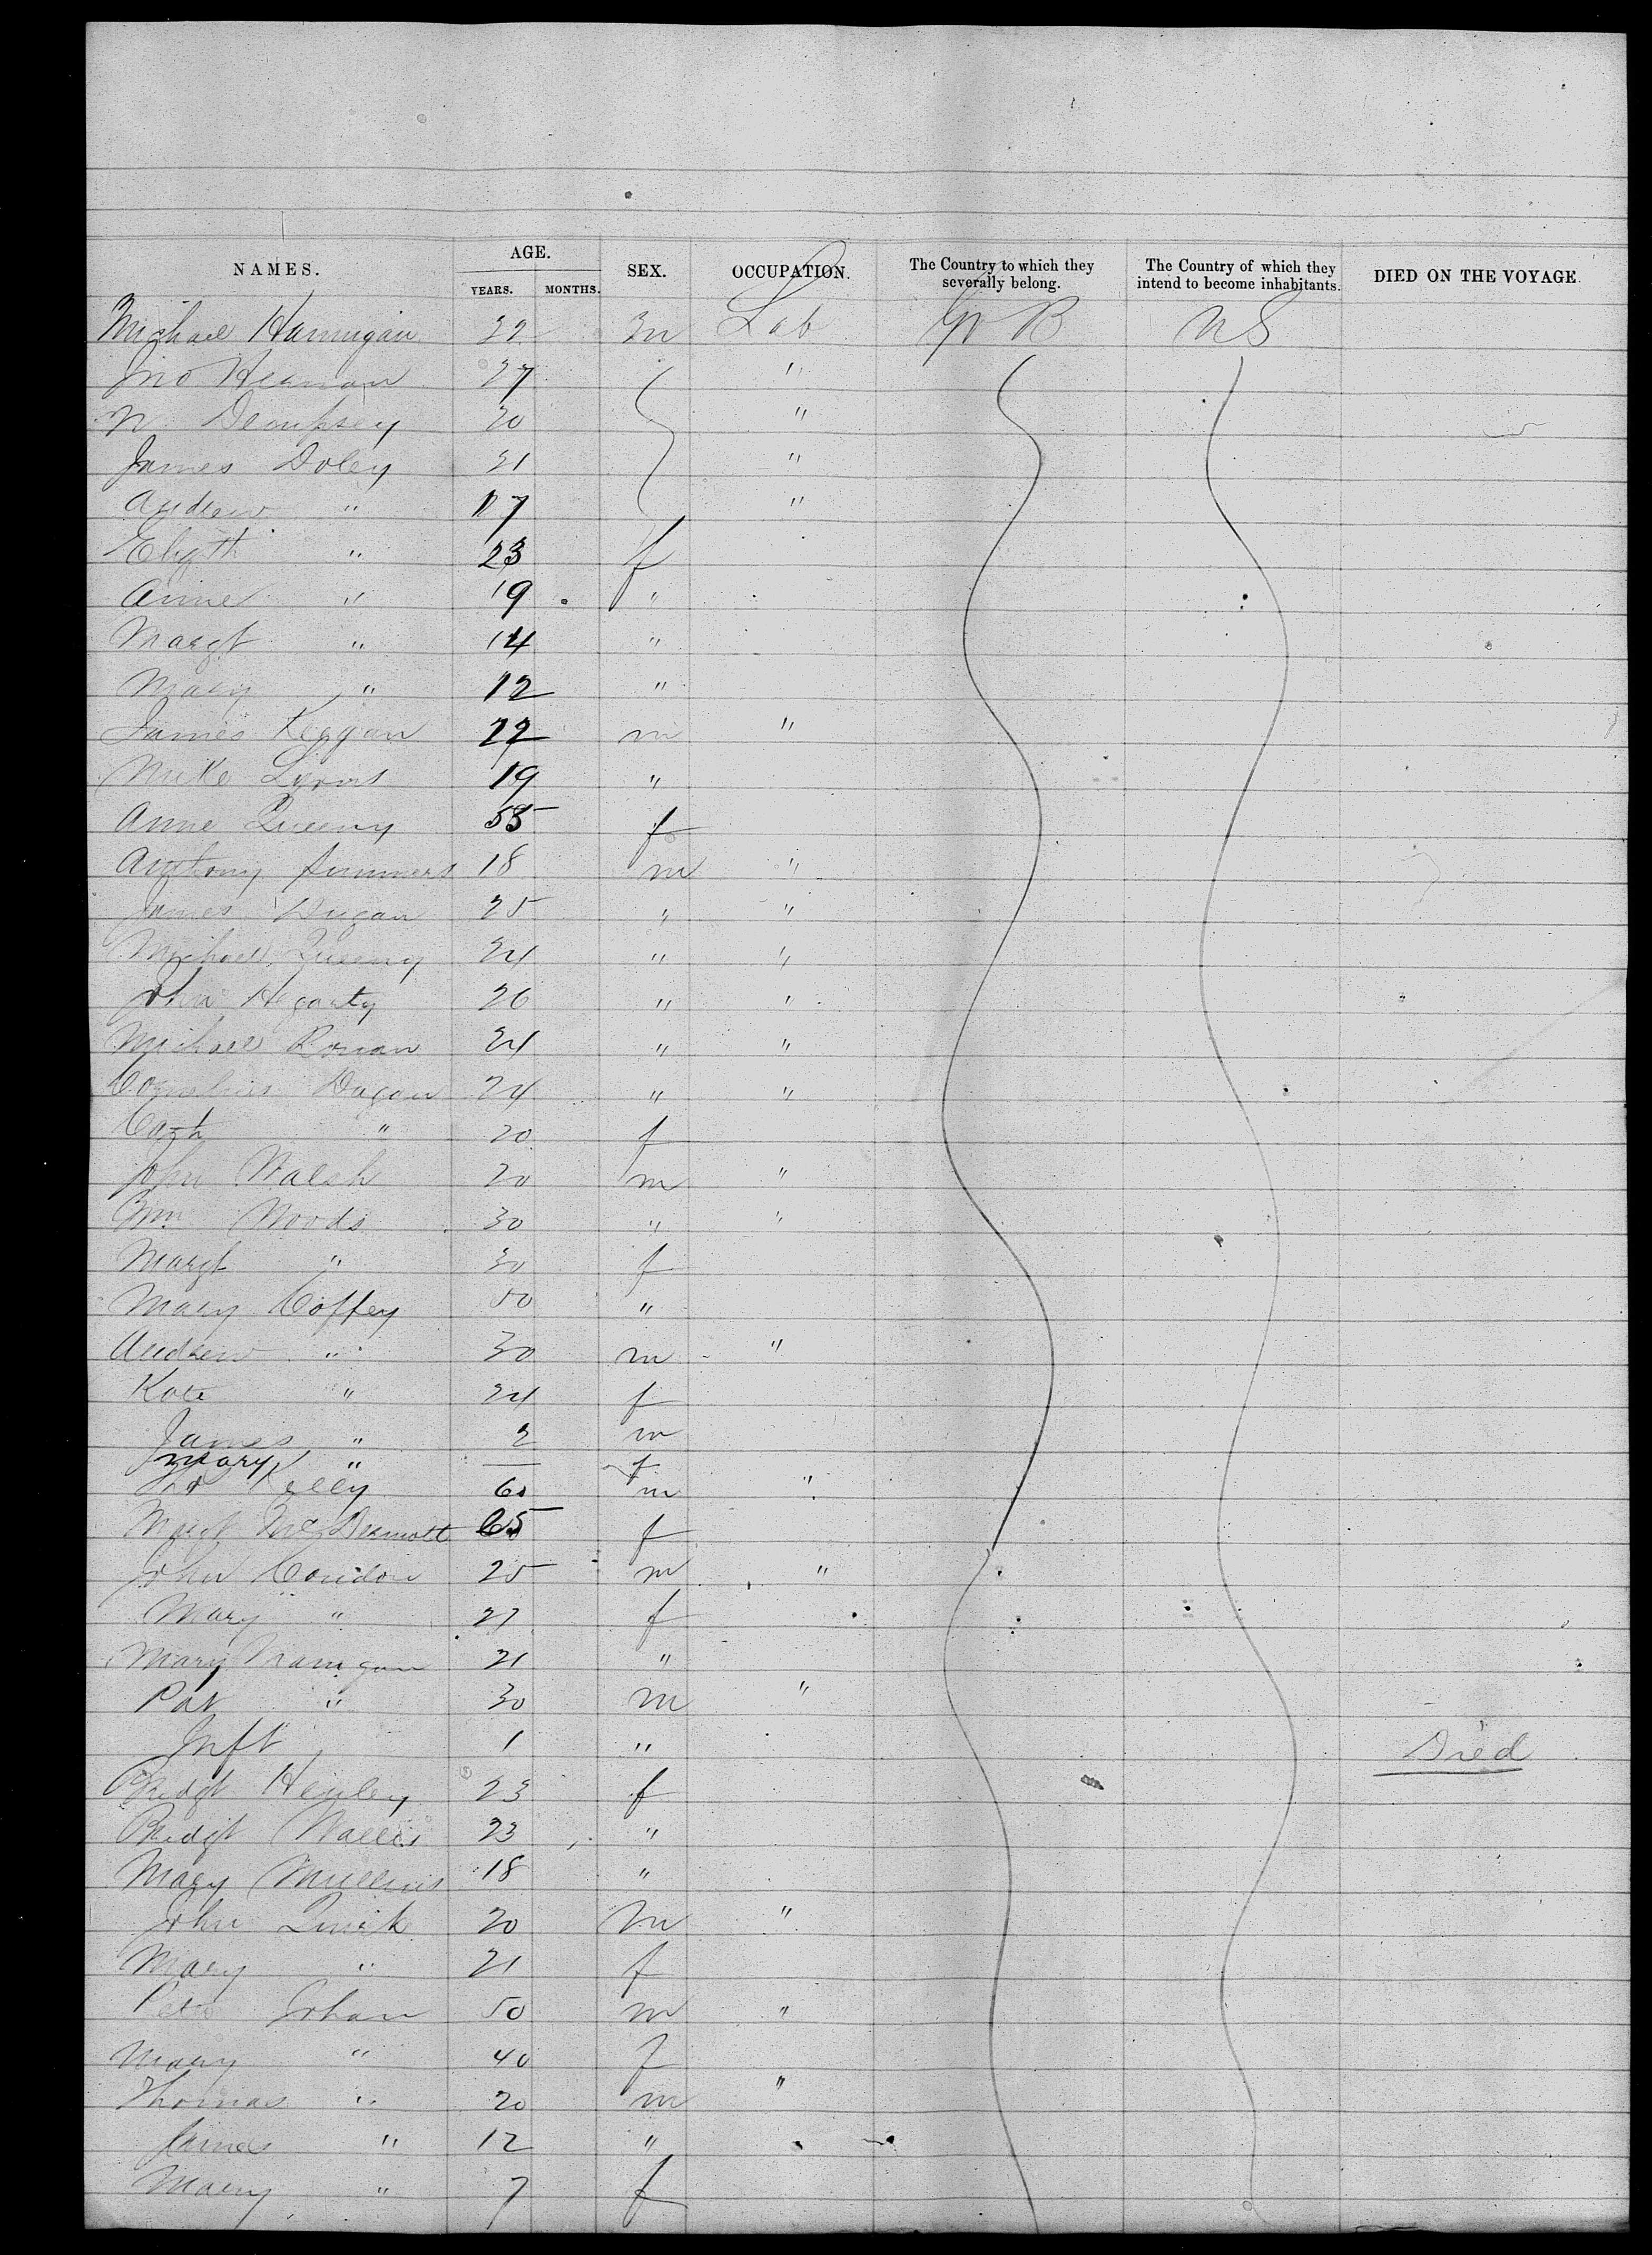 NAMES. AGE. SEX. OCCUPATION. The Country to which they severally belong. The Country of which they intend to become inhabitants. DIED ON THE VOYAGE.
YEARS. MONTHS.
Michael Hannigan 22 m Lab Gr B US
Jno Heenan 27 "
Dempsey 20 "
James Doley 21 "
Andrew " 17 "
Elizth " 23 f
Anne " 19 "
Margt " 14 "
Mary " 12 "
James Keggan 22 m "
Mike Lyons 19 "
Anne Queeny 55 f
Anthony Summers 18 m "
James Dugan 25 " "
Michael Queeny 24 " "
John Hegarty 26 " "
Michael Ronan 24 " "
Cornelius Dugan 24 " "
Cath " 20 f
John Walsh 20 m "
Wm Woods 30 " "
Margt " 30 f
Mary Coffey 50 "
Andrew " 30 m "
Kate " 24 f
James " 2 m
Mary " — f
Jno Kelly 60 m "
Margt McDermott 65 f
John Condon 25 m "
Mary " 27 f
Mary Hannigan 21 "
Pat " 30 m "
Inft 1 " Died
Bridgt Henley 23 f
Bridgt Wallis 23 "
Mary Mullins 18 "
John Quirk 20 m "
Mary " 21 f
Peter Gohan 50 m "
Mary " 40 f
Thomas " 20 m "
James " 12 "
Mary " 7 f